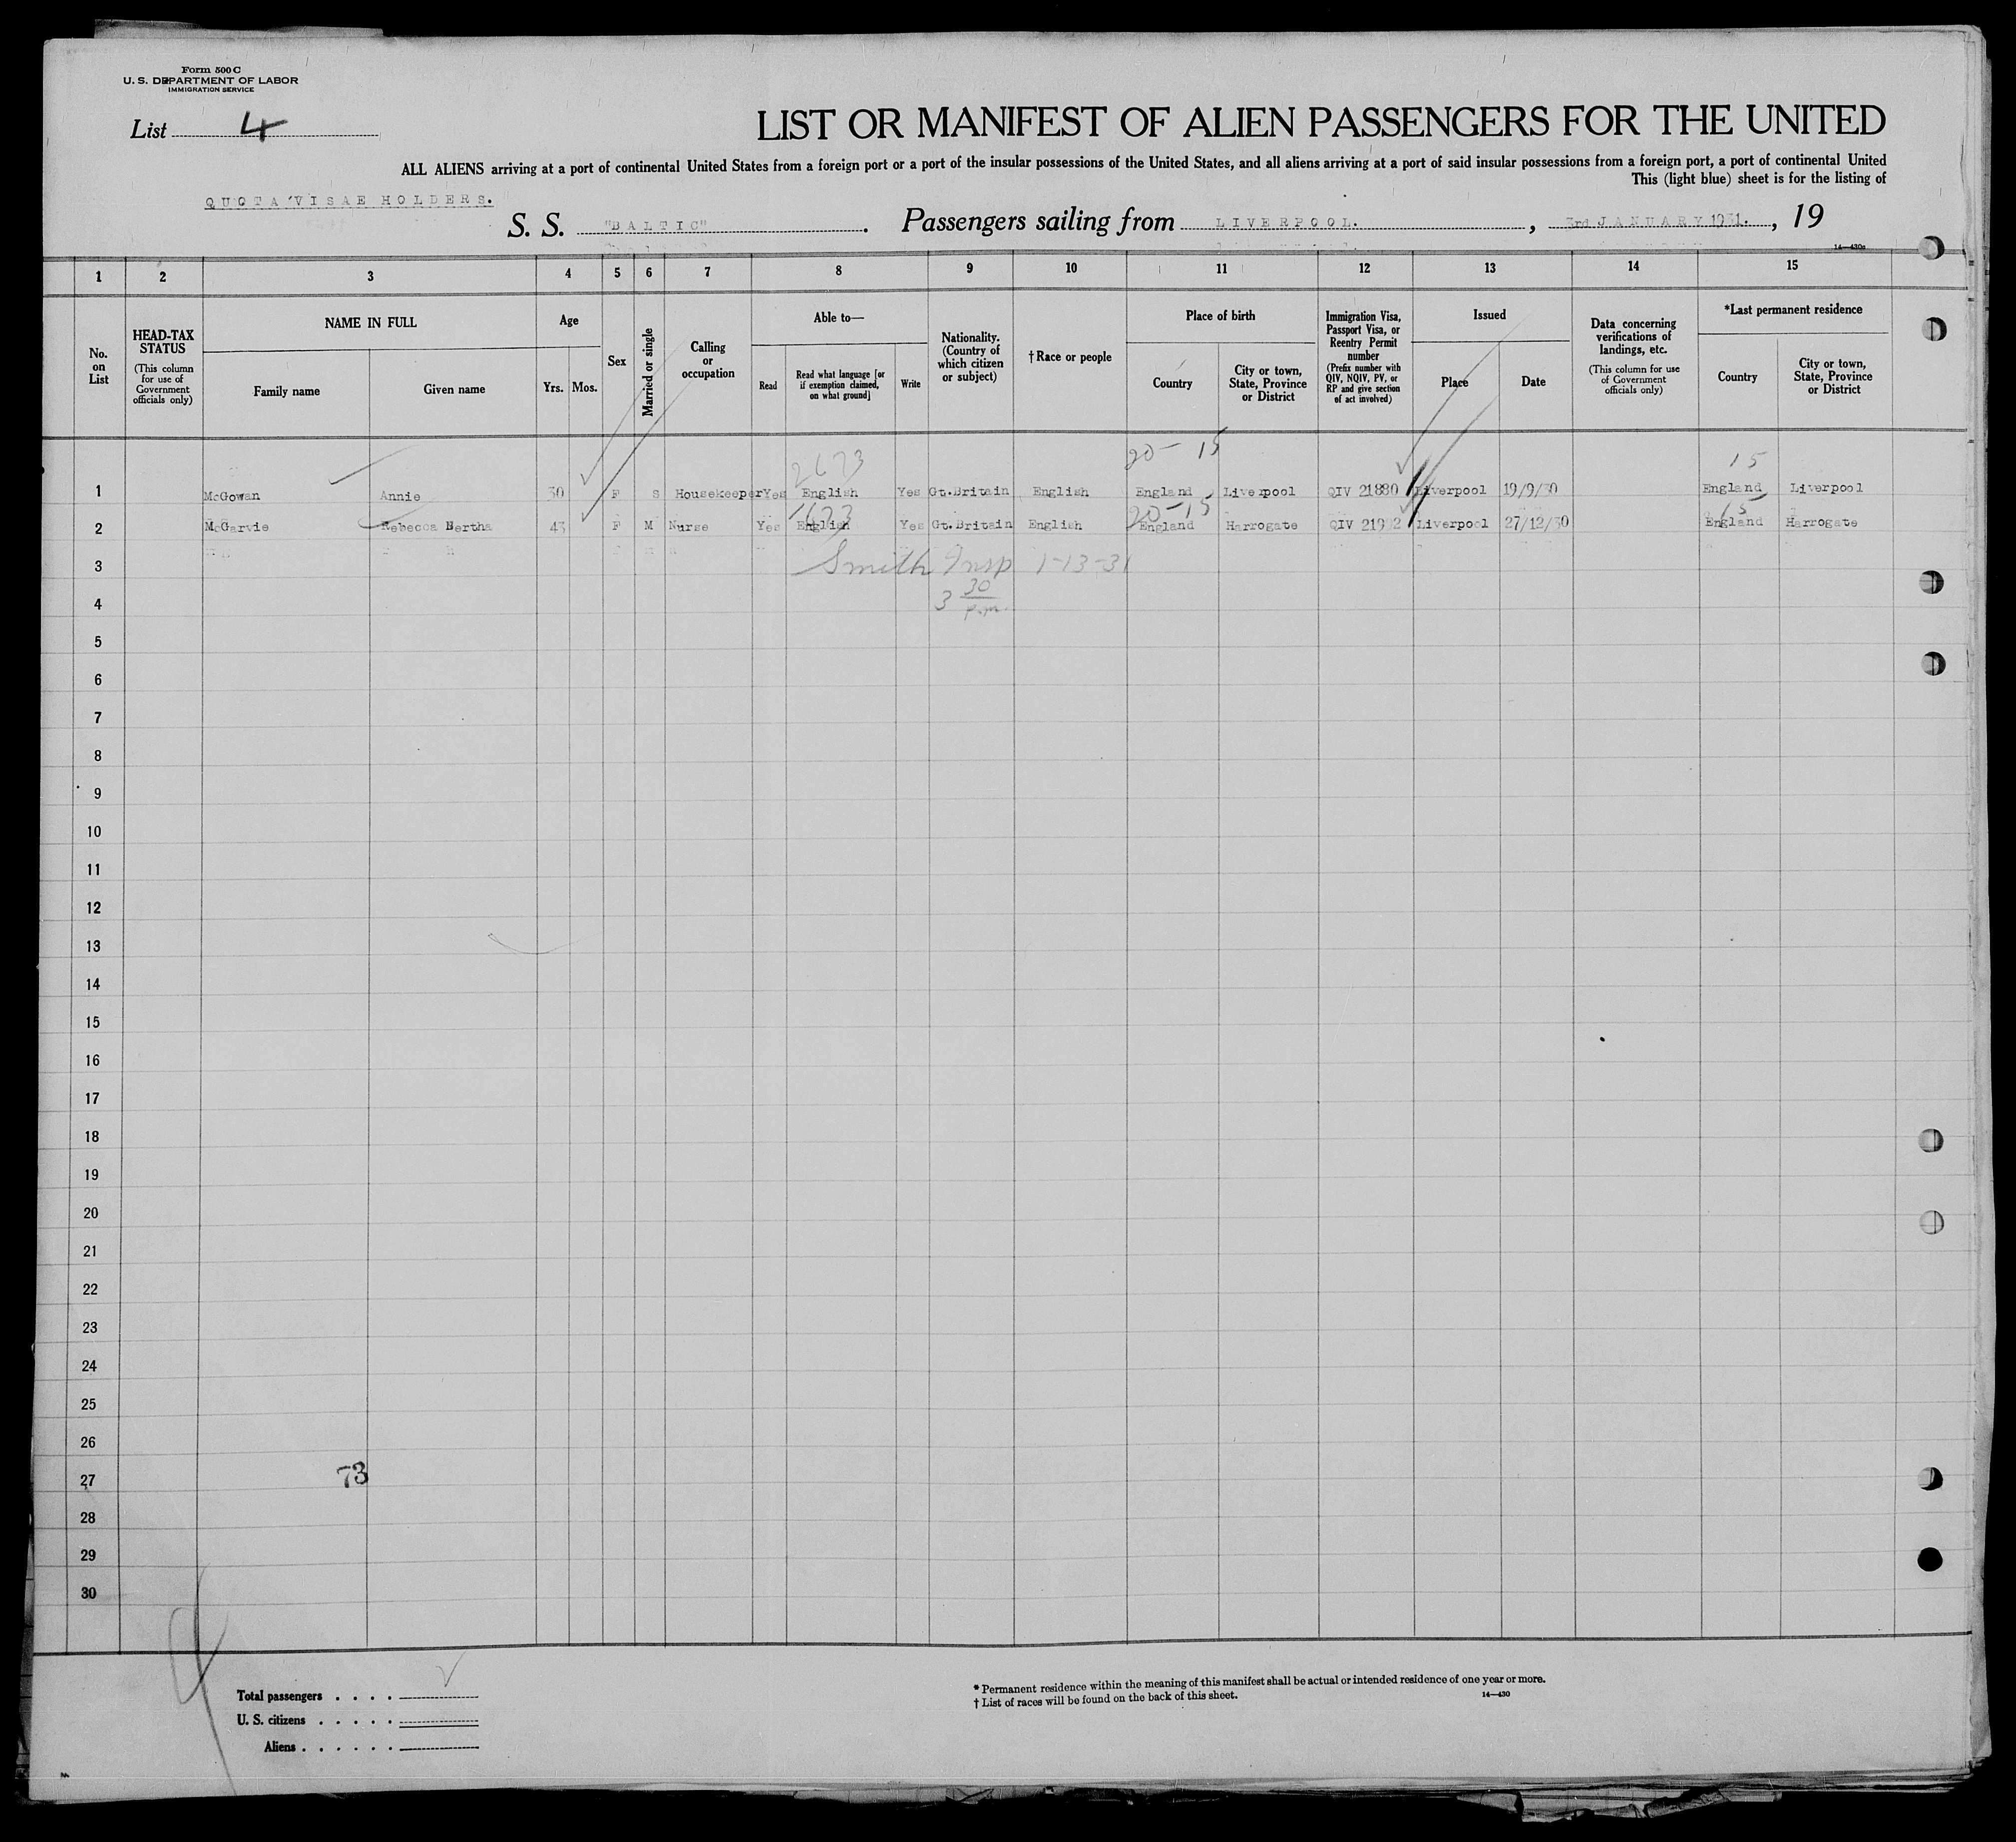 Form 500 C
U. S. DEPARTMENT OF LABOR
IMMIGRATION SERVICE
List 4
LIST OR MANIFEST OF ALIEN PASSENGERS FOR THE UNITED
ALL ALIENS arriving at a port of continental United States from a foreign port or a port of the insular possessions of the United States, and all aliens arriving at a port of said insular possessions from a foreign port, a port of continental United
This (light blue) sheet is for the listing of
QUOTA VISAE HOLDERS.
S. S. "BALTIC". Passengers sailing from LIVERPOOL. , 3rd JANUARY 1931. , 19
14—430a
1 2 3 4 5 6 7 8 9 10 11 12 13 14 15
No. on List
HEAD-TAX STATUS
(This column for use of Government officials only)
NAME IN FULL
Family name Given name
Age
Yrs. Mos.
Sex
Married or single
Calling or occupation
Able to—
Read
Read what language [or if exemption claimed, on what ground]
Write
Nationality. (Country of which citizen or subject)
† Race or people
Place of birth
Country
City or town, State, Province or District
Immigration Visa, Passport Visa, or Reentry Permit number
(Prefix number with QIV, NQIV, PV, or RP and give section of act involved)
Issued
Place Date
Data concerning verifications of landings, etc.
(This column for use of Government officials only)
*Last permanent residence
Country
City or town, State, Province or District
2673 20-15 15
1 McGowan Annie 30 F S Housekeeper Yes English Yes Gt.Britain English England Liverpool QIV 21880 Liverpool 19/9/30 England Liverpool
1673 20-15 15
2 McGarvie Rebecca Bertha 43 F M Nurse Yes English Yes Gt.Britain English England Harrogate QIV Liverpool 27/12/30 England Harrogate
3 Smith Insp 1-13-31
4 3 30 p.m.
5
6
7
8
9
10
11
12
13
14
15
16
17
18
19
20
21
22
23
24
25
26
27 73
28
29
30
Total passengers . . . .
U. S. citizens . . . . .
Aliens . . . . . .
* Permanent residence within the meaning of this manifest shall be actual or intended residence of one year or more.
† List of races will be found on the back of this sheet.
14—430